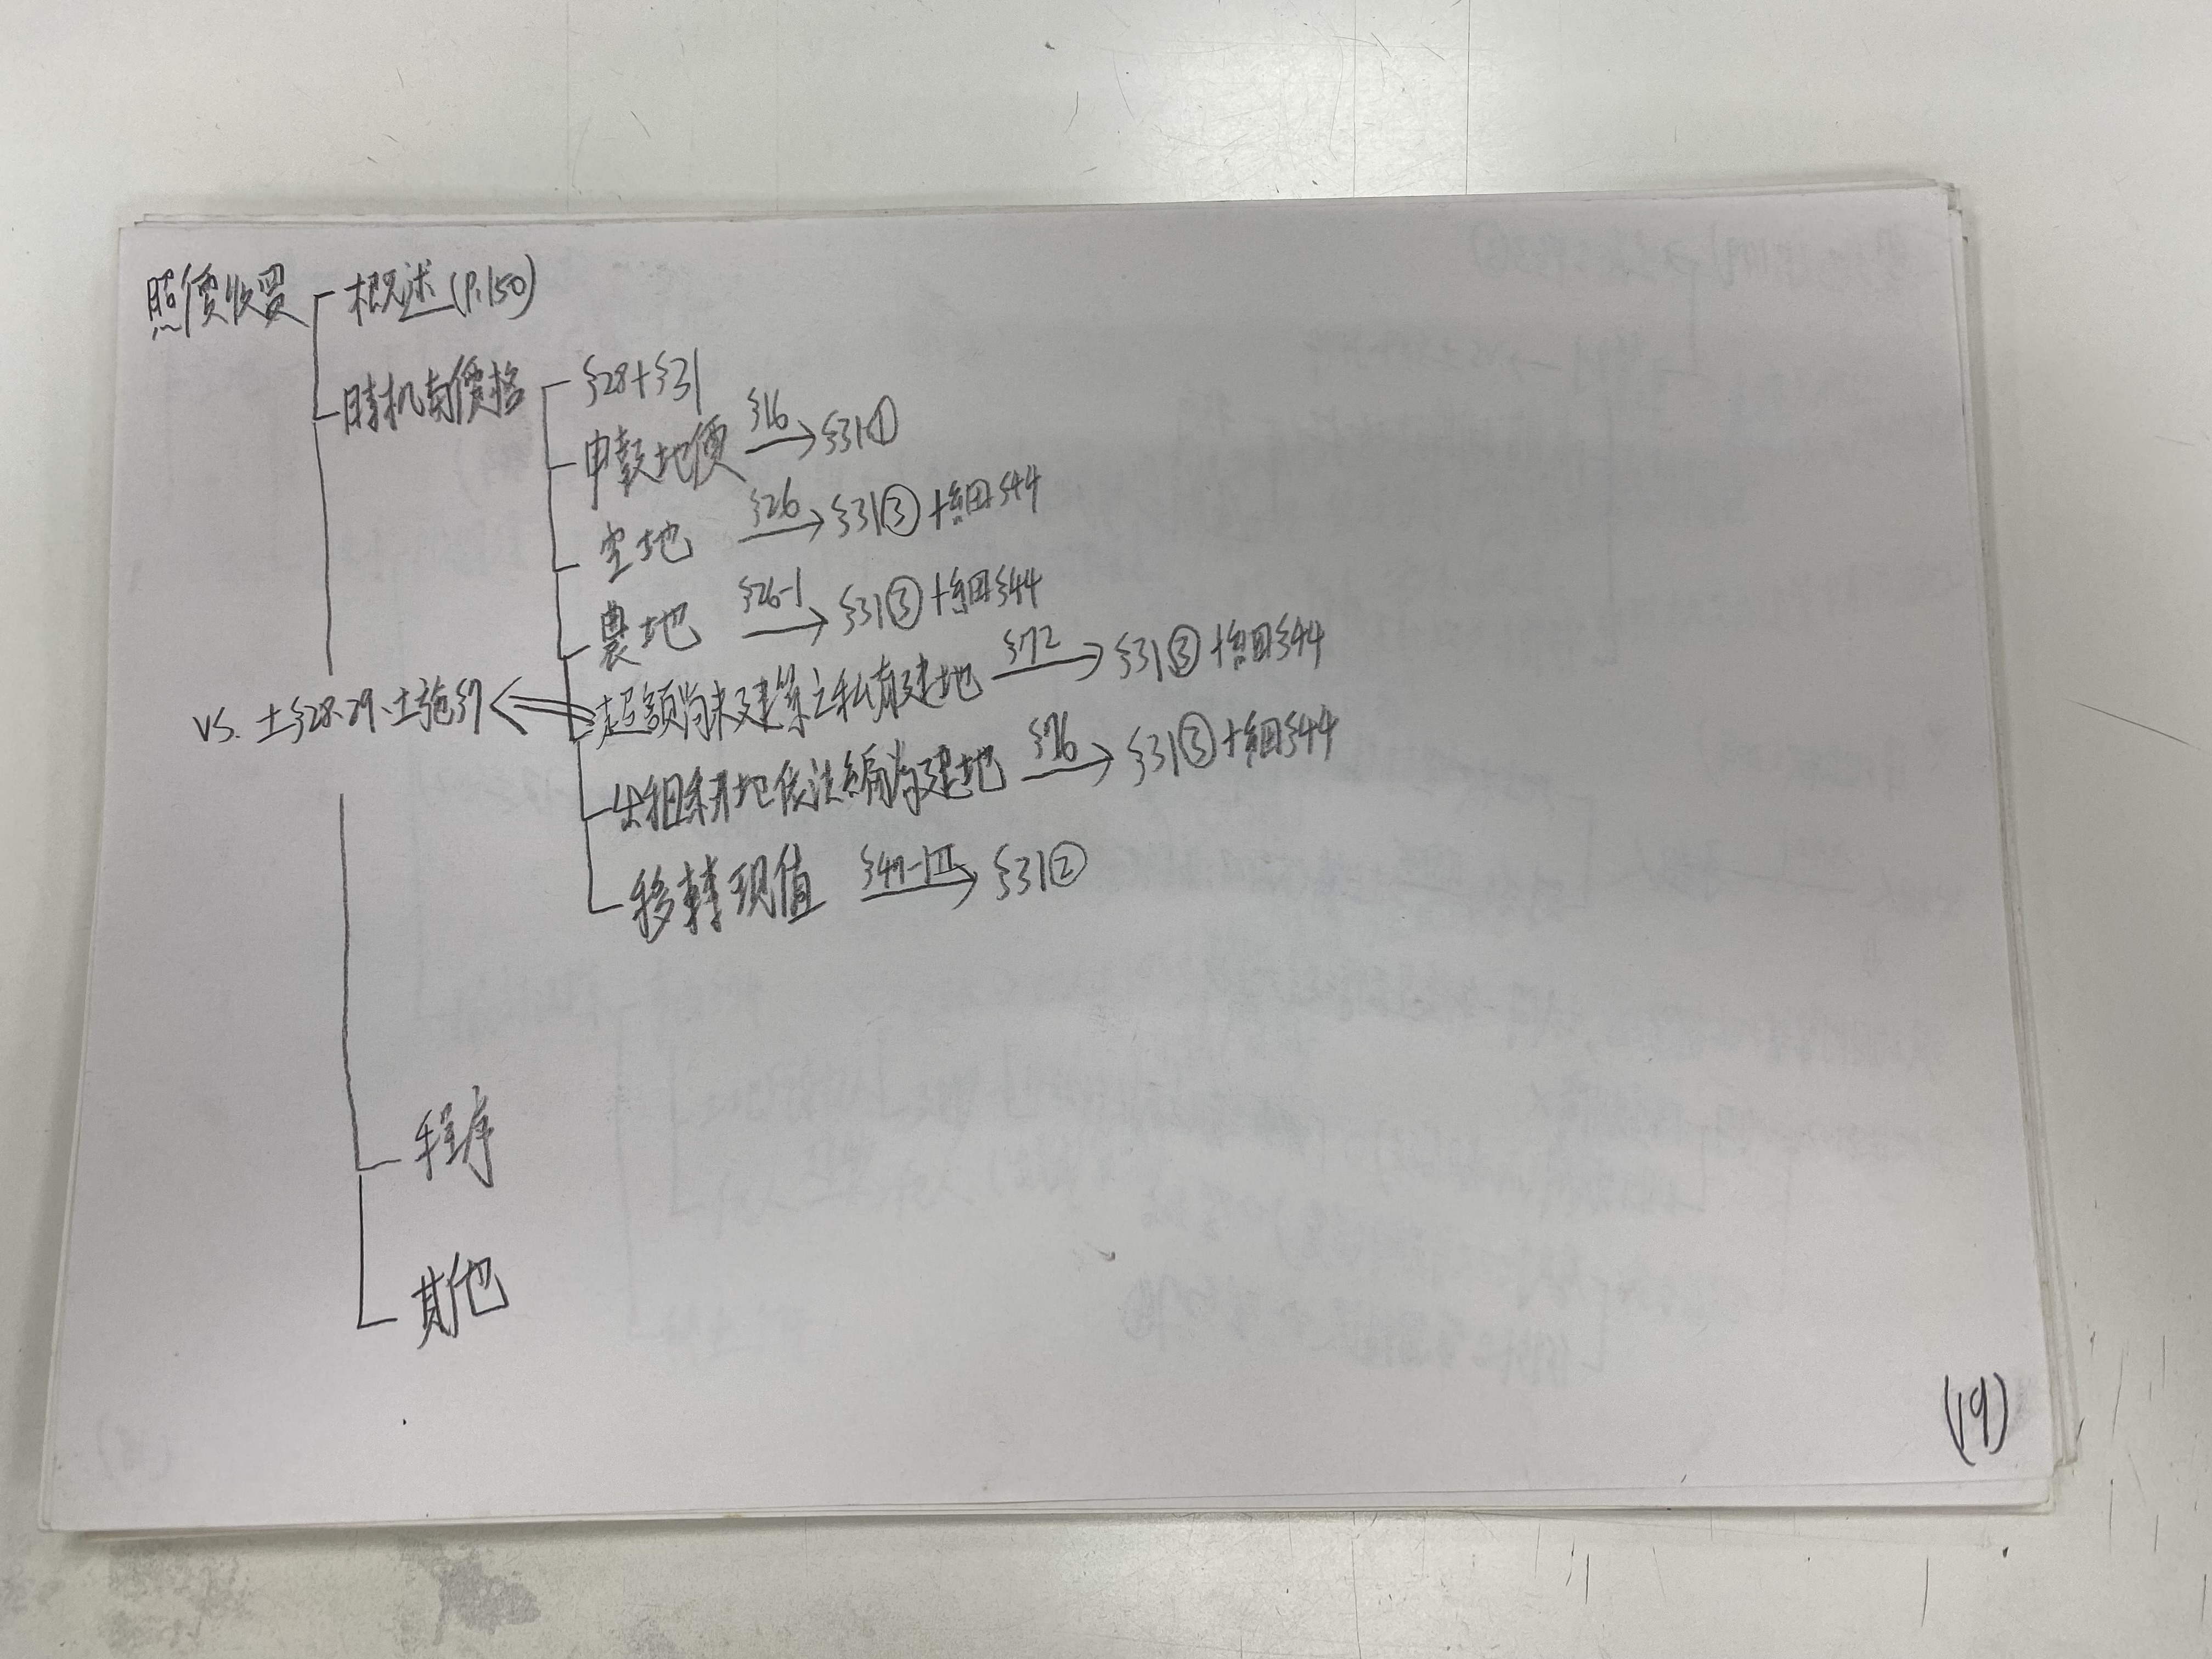 照價收買
概述(P.150)
時機與價格
§28+§31
申報地價 §16→ §31①
空地 §26→ §31③+細§44
農地 §26-1→ §31③+細§44
vs. 土§28、29、土施§7 ⇐ 超額尚未建築之私有建地 §72→ §31③+細§44
出租耕地依法編為建地 §76→ §31③+細§44
移轉現值 §47-1II→ §31②
程序
其他
(19)